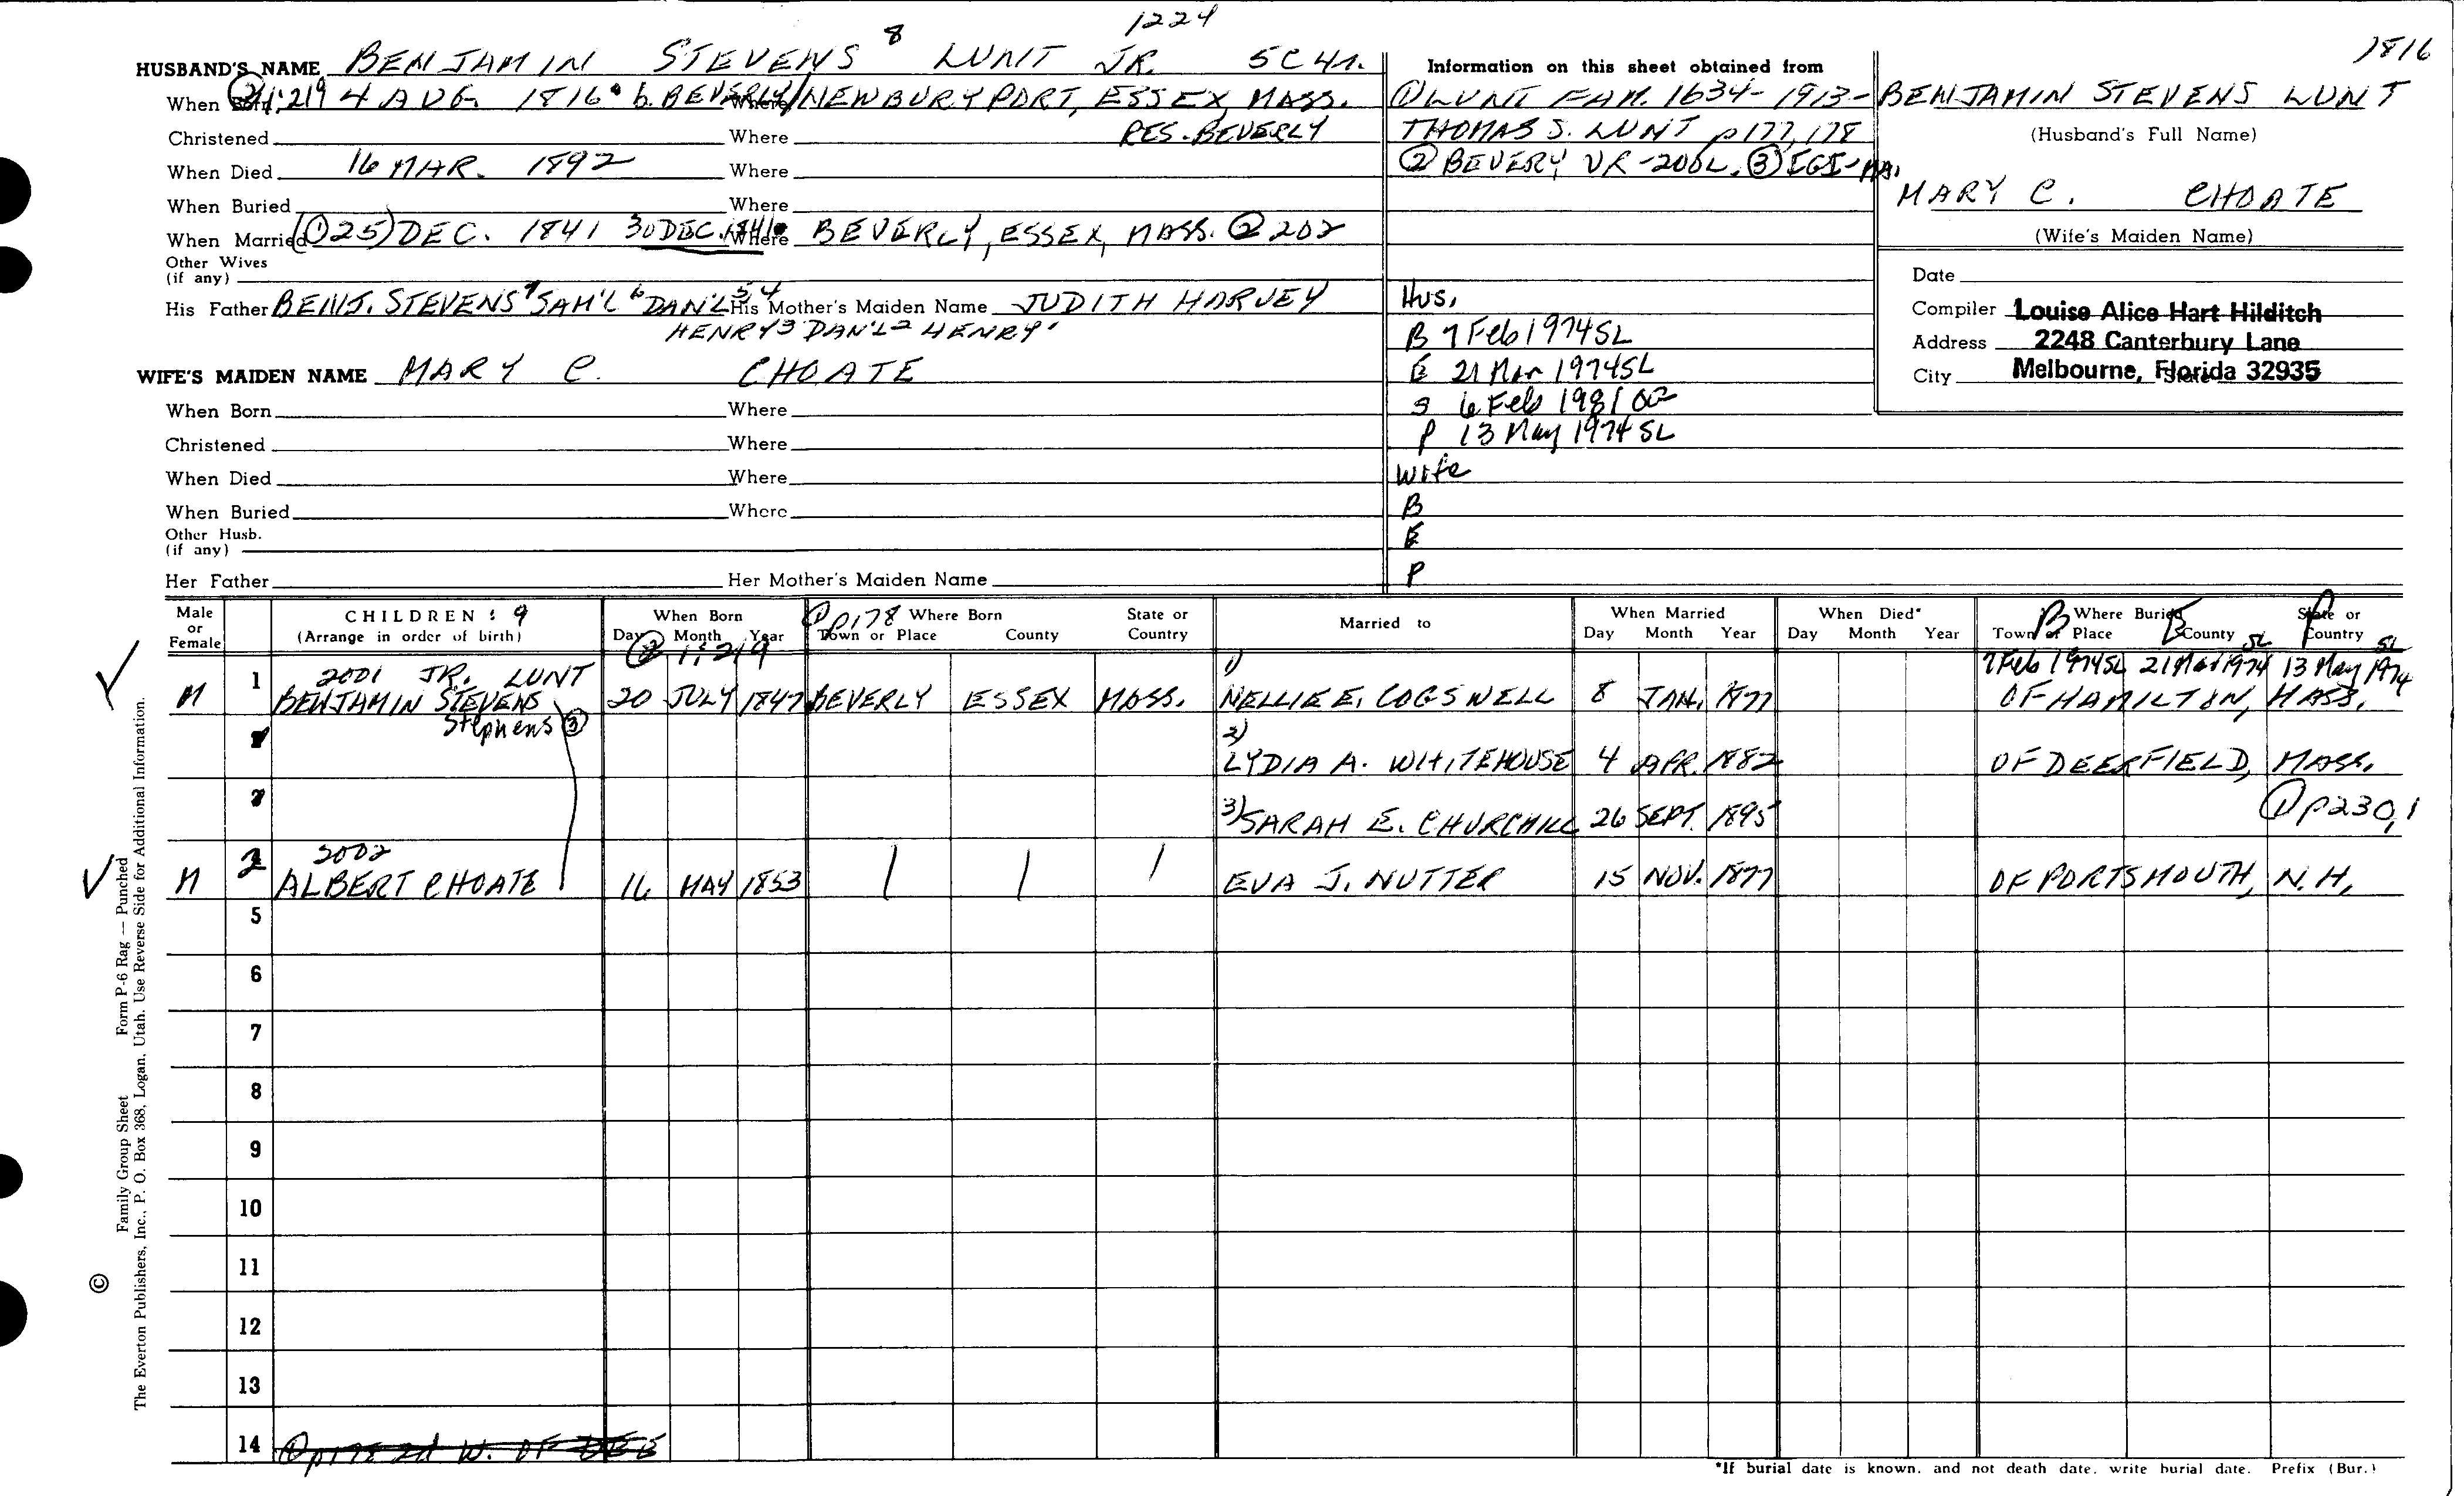 1224
1816
HUSBAND'S NAME BENJAMIN STEVENS 8 LUNT JR. 5C4
When Born ② 1:219 4 AUG. 1816 b. BEVERLY/ Where NEWBURYPORT, ESSEX, MASS.
Christened Where RES. BEVERLY
When Died 16 MAR. 1892 Where
When Buried Where
When Married (① 25) DEC. 1841 30 DEC. 1841 Where BEVERLY, ESSEX, MASS. ② 202
Other Wives
(if any)
His Father BENJ. STEVENS 7 SAM'L 6 DAN'L 5 4 His Mother's Maiden Name JUDITH HARVEY
HENRY 3 DAN'L 2 HENRY 1
WIFE'S MAIDEN NAME MARY C. CHOATE
When Born Where
Christened Where
When Died Where
When Buried Where
Other Husb.
(if any)
Her Father Her Mother's Maiden Name
Information on this sheet obtained from
① LUNT FAM. 1634-1913-
THOMAS S. LUNT p177,178
② BEVERY VR-200L. ③ IGI-MA.
Hus.
B 7 Feb 1974 SL
E 21 Mar 1974 SL
S 6 Feb 1981
P 13 May 1974 SL
Wife
B
E
P
BENJAMIN STEVENS LUNT
(Husband's Full Name)
MARY C. CHOATE
(Wife's Maiden Name)
Date
Compiler Louise Alice Hart Hilditch
Address 2248 Canterbury Lane
City Melbourne, Florida 32935 State
Male or Female CHILDREN : 9 (Arrange in order of birth) When Born Day Month Year ① p178 Where Born Town or Place County State or Country Married to When Married Day Month Year When Died* Day Month Year B Where Buried E P Town or Place County State or Country
③ 1:219
7 Feb 1974 SL 21 Mar 1974 SL 13 May 1974 SL
2001 JR. LUNT
M 1 BENJAMIN STEVENS 20 JULY 1847 BEVERLY ESSEX MASS. 1) NELLIE E. COGSWELL 8 JAN. 1877 OF HAMILTON, MASS.
Stephens ③
2) LYDIA A. WHITEHOUSE 4 APR. 1882 OF DEERFIELD, MASS.
3) SARAH E. CHURCHILL 26 SEPT. 1895 ① p230,1
2002
M 2 ALBERT CHOATE 16 MAY 1853 EVA J. NUTTER 15 NOV. 1877 OF PORTSMOUTH, N.H.
5
6
7
8
9
10
11
12
13
14 ① p178 2d W. OF
*If burial date is known, and not death date, write burial date. Prefix (Bur.)
© Family Group Sheet Form P-6 Rag — Punched
The Everton Publishers, Inc., P. O. Box 368, Logan, Utah. Use Reverse Side for Additional Information.